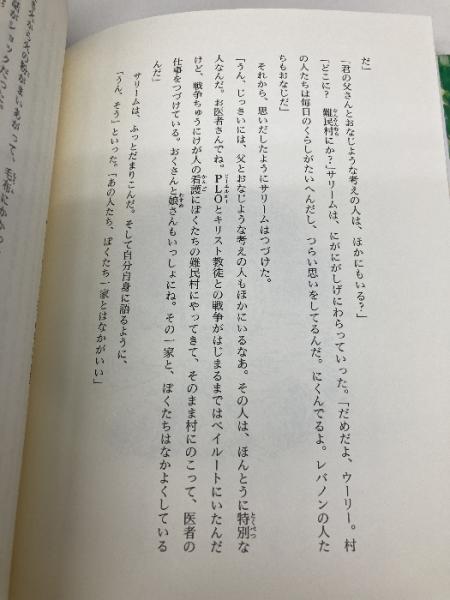 だ」
「君の父さんとおなじような考えの人は、ほかにもいる?」
「どこに? 難民村にか?」サリームは、にがにがしげにわらっていった。「だめだよ、ウーリー。村
の人たちは毎日のくらしがたいへんだし、つらい思いをしてるんだ。にくんでるよ。レバノンの人た
ちもおなじだ」
それから、思いだしたようにサリームはつづけた。
「うん、じっさいには、父とおなじような考えの人もほかにいるなあ。その人は、ほんとうに特別な
人なんだ。お医者さんでね。PLOとキリスト教徒との戦争がはじまるまではベイルートにいたんだ
けど、戦争ちゅうにけが人の看護にぼくたちの難民村にやってきて、そのまま村にのこって、医者の
仕事をつづけている。おくさんと娘さんもいっしょにね。その一家と、ぼくたちはなかよくしている
んだ」
サリームは、ふっとだまりこんだ。そして自分自身に語るように、
「うん、そう」といった。「あの人たち、ぼくたち一家とはなかがいい」